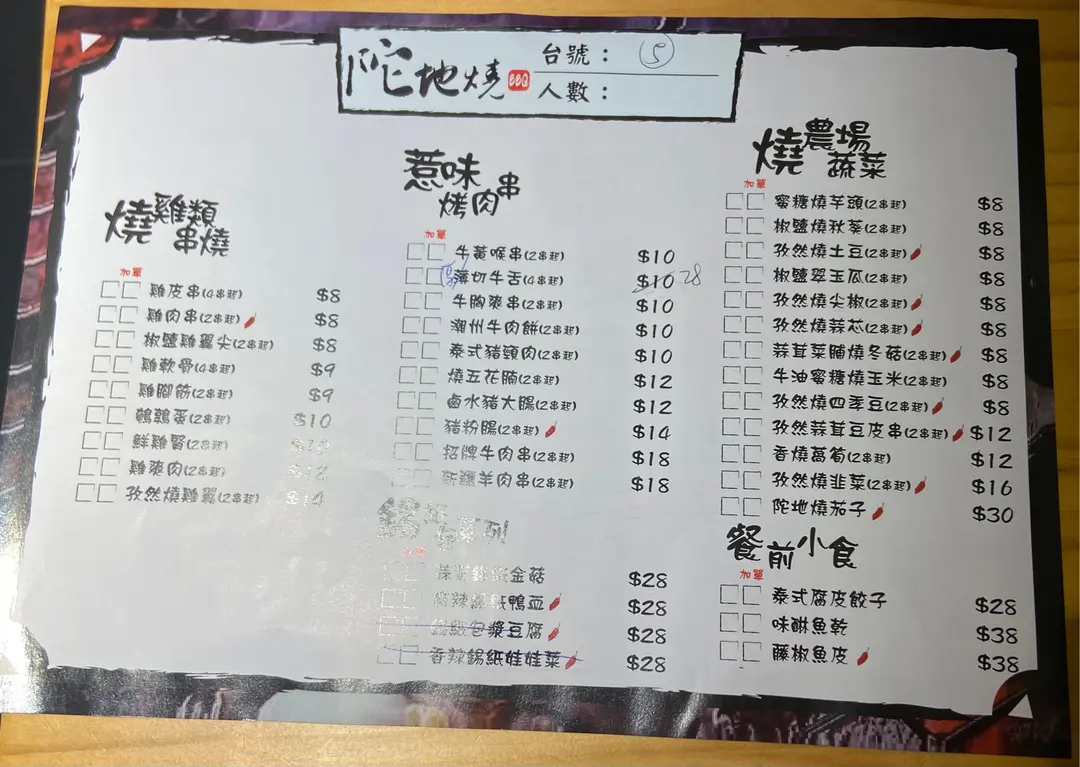 陀地燒 BBQ
台號： 5
人數：
燒雞類串燒
加單
雞皮串(4串起) $8
雞肉串(2串起) $8
椒鹽雞翼尖(2串起) $8
雞軟骨(4串起) $9
雞腳筋(2串起) $9
鵪鶉蛋(2串起) $10
鮮雞腎(2串起)
雞爽肉(2串起) $12
孜然燒雞翼(2串起) $14
惹味烤肉串
加單
牛黃喉串(2串起) $10
薄切牛舌(4串起) $10 28
牛胸爽串(2串起) $10
潮州牛肉餅(2串起) $10
泰式豬頸肉(2串起) $10
燒五花腩(2串起) $12
鹵水豬大腸(2串起) $12
豬粉腸(2串起) $14
招牌牛肉串(2串起) $18
新疆羊肉串(2串起) $18
系列
金菇 $28
辣錫紙鴨血 $28
錫紙包漿豆腐 $28
香辣錫紙娃娃菜 $28
燒農場蔬菜
加單
蜜糖燒芋頭(2串起) $8
椒鹽燒秋葵(2串起) $8
孜然燒土豆(2串起) $8
椒鹽翠玉瓜(2串起) $8
孜然燒尖椒(2串起) $8
孜然燒蒜芯(2串起) $8
蒜茸菜脯燒冬菇(2串起) $8
牛油蜜糖燒玉米(2串起) $8
孜然燒四季豆(2串起) $8
孜然蒜茸豆皮串(2串起) $12
香燒萵筍(2串起) $12
孜然燒韭菜(2串起) $16
陀地燒茄子 $30
餐前小食
加單
泰式腐皮餃子 $28
味醂魚乾 $38
藤椒魚皮 $38